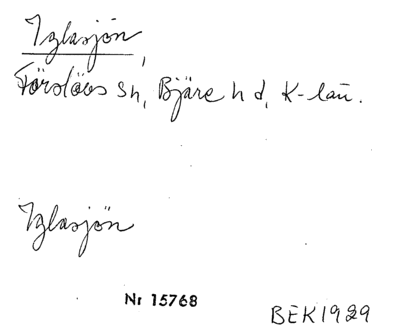 Iglasjön,
Förslövs sn, Bjäre hd, K-län.
Iglasjön
Nr 15768
BEK1929